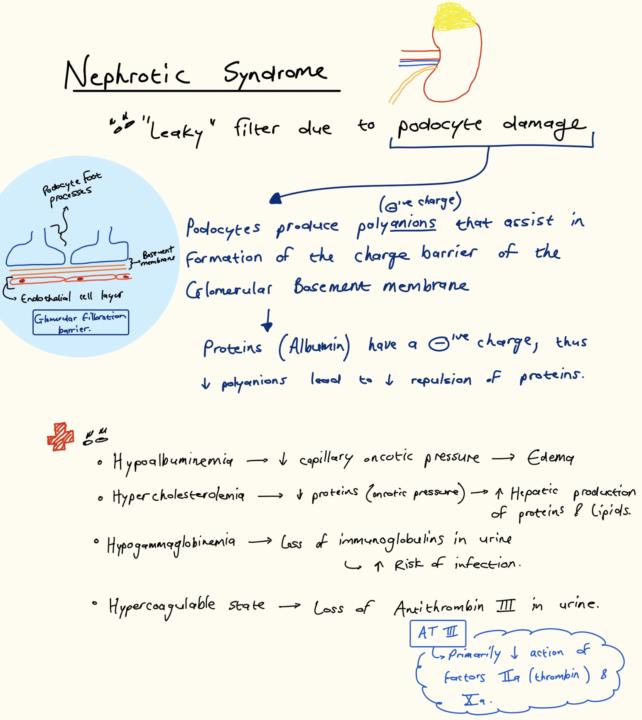 Nephrotic Syndrome
"Leaky" filter due to podocyte damage
Podocyte foot
processes
Basement
membrane
Endothelial cell layer
Glomerular filtration
barrier.
(⊖'ve charge)
Podocytes produce polyanions that assist in
formation of the charge barrier of the
Glomerular Basement membrane
↓
Proteins (Albumin) have a ⊖'ve charge, thus
↓ polyanions lead to ↓ repulsion of proteins.
• Hypoalbuminemia → ↓ capillary oncotic pressure → Edema
• Hypercholesterolemia → ↓ proteins (oncotic pressure) → ↑ Hepatic production
of proteins & Lipids.
• Hypogammaglobinemia → Loss of immunoglobulins in urine
↳ ↑ Risk of infection.
• Hypercoagulable state → Loss of Antithrombin III in urine.
AT III
↳ Primarily ↓ action of
factors IIa (thrombin) &
Xa.